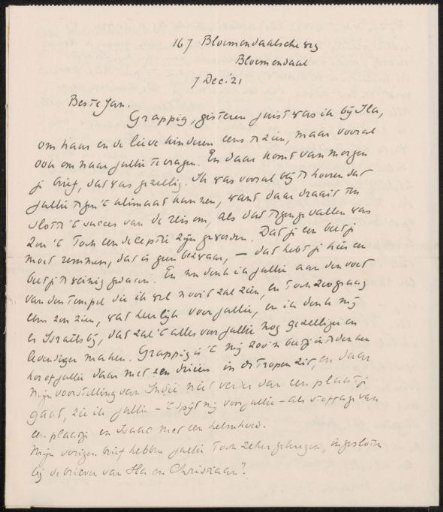 167 Bloemendaalscheweg
Bloemendaal
7 Dec. '21
Beste Jan.
Grappig, gisteren juist was ik bij Ila,
om haar en de lieve kinderen eens te zien, maar vooral
ook om naar jullie te vragen. En daar komt van morgen
je brief, dat was gezellig. Ik was vooral blij te hooren dat
jullie tegen 't klimaat kunnen, want daar draait ten
slotte 't succes van de reis om, als dat tegengevallen was
zou 't toch een deceptie zijn geworden. Dat je een beetje
moet is geen bezwaar, — dat heb je hier een
beetje te weinig gedaan. En nu denk ik jullie aan den voet
van den tempel die ik wel nooit zal zien, en toch zoo graag
eens zou zien, wat heerlijk voor jullie, en ik denk mij
er Israëls bij, dat zal 't alles voor jullie nog gezelliger en
maken. Grappig is 't mij zoo'n
jullie daar met zen drieën in de tropen zit, en daar
mijn voorstelling van Indië niet verder dan een plaatje
gaat, zie ik jullie – 't spijt mij voor jullie – als van
een plaatje en Isaac met een helmhoed.
Mijn vorigen brief hebben jullie toch zeker gekregen, ingesloten
bij de brieven van Ila en Christiaan?